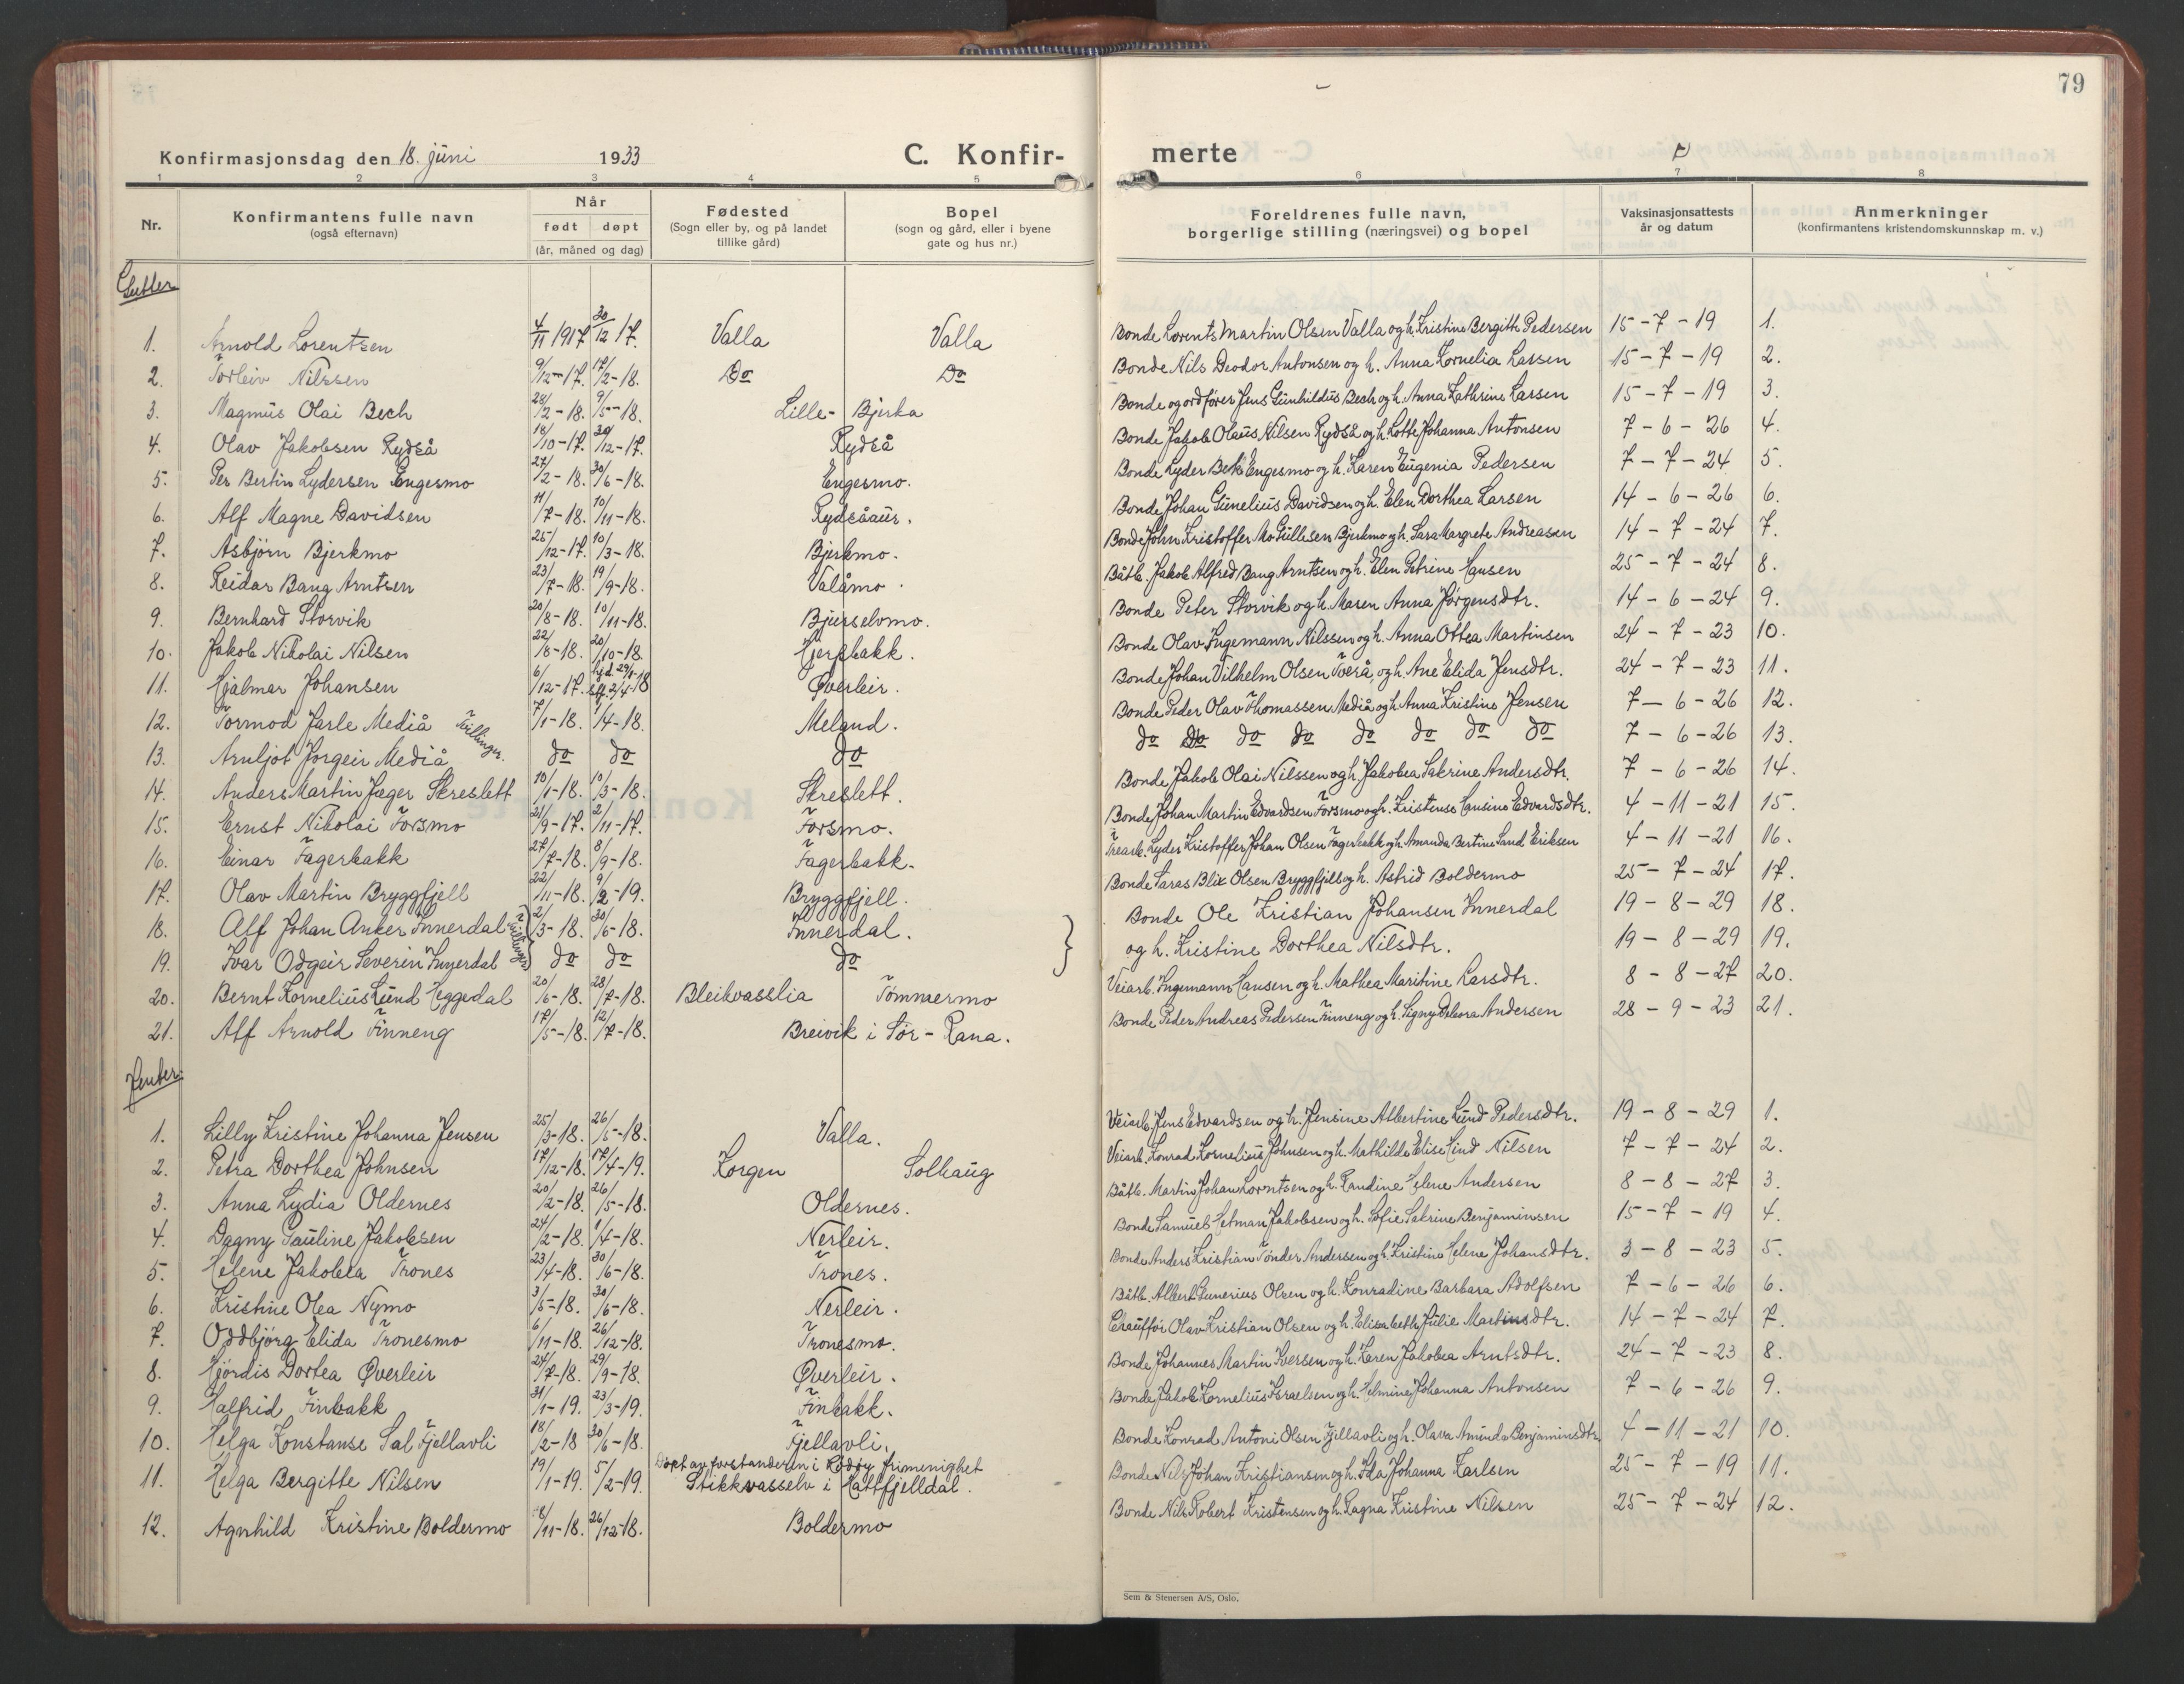 79
Konfirmasjonsdag den 18. juni 1933
C. Konfir-
merte
1 2 3 4 5 6 7 8
Nr.
Konfirmantens fulle navn
(også efternavn)
Når
født døpt
(år, måned og dag)
Fødested
(Sogn eller by, og på landet
tillike gård)
Bopel
(sogn og gård, eller i byene
gate og hus nr.)
Foreldrenes fulle navn,
borgerlige stilling (næringsvei) og bopel
Vaksinasjonsattests
år og datum
Anmerkninger
(konfirmantens kristendomskunnskap m. v.)
Gutter
1. Arnold Lorentsen 4/11 1917 30/12 17. Valla Valla Bonde Lorents Martin Olsen Valla og h. Kristine Bergitte Pedersen 15-7-19 1.
2. Torleiv Nilssen 9/12-17. 17/2-18. Do Do Bonde Nils Deodor Antonsen og h. Anna Kornelia Larsen 15-7-19 2.
3. Magnus Olai Bech 28/2-18. 9/5-18. Lille-Bjerka Bonde og ordfører Jens Gunhildus Bech og h. Anna Kathrine Larsen 15-7-19 3.
4. Olav Jakobsen Rydså 18/10-17. 30/12-17. Rydså Bonde Jakob Olaus Nilsen Rydså og h. Lotte Johanna Antonsen 7-6-26 4.
5. Per Bertin Lydersen Engesmo 27/2-18. 30/6-18. Engesmo. Bonde Lyder Bek Engesmo og h. Karen Eugenia Pedersen 7-7-24 5.
6. Alf Magne Davidsen 11/7-18. 10/11-18. Rydsåaur. Bonde Johan Gunelius Davidsen og h. Elen Dorthea Larsen 14-6-26 6.
7. Asbjörn Bjerkmo 25/12-17. 10/3-18. Bjerkmo. Bonde John Kristoffer Mo Gullesen Bjerkmo og h. Sara Margrete Andreasen 14-7-24 7.
8. Reidar Bang Arntsen 23/7-18. 19/9-18. Valåmo. Båtb. Jakob Alfred Bang Arntsen og h. Elen Petrine Hansen 25-7-24 8.
9. Bernhard Storvik 20/8-18. 10/11-18. Bjurselvmo. Bonde Peter Storvik og h. Masen Anna Jørgensdtr. 14-6-24 9.
10. Jakob Nikolai Nilsen 22/8-18. 20/10-18. Hjerpbakk. Bonde Olav Ingemann Nilssen og h. Anna Ottea Martinsen 24-7-23 10.
11. Hjalmar Johansen 6/12-17. hjd. 29/1-18 stf. 2/4-18 Øverleir. Bonde Johan Vilhelm Olsen Tverå, og h. Ane Elida Jensdtr. 24-7-23 11.
12. Tormod Jarle Mediå Tvillinger. 7/1-18. 1/4-18. Meland. Bonde Peder Olav Thomassen Mediå og h. Anna Kristine Jensen 7-6-26 12.
13. Arnljot Jorgeir Mediå do do do do do do do do do do do 7-6-26 13.
14. Anders Martin Jæger Skreslett 10/1-18. 10/3-18. Skreslett. Bonde Jakob Olai Nilssen og h. Jakobea Sakrine Andersdtr. 7-6-26 14.
15. Ernst Nikolai Forsmo 21/9-17. 2/11-17. Forsmo. Bonde Johan Martin Edvardsen Forsmo og h. Kristense Hansine Edvardsdtr. 4-11-21 15.
16. Einar Fagerbakk 27/7-18. 8/9-18. Fagerbakk. Trearb. Lyder Kristoffer Johan Olsen Fagerbakk og h. Amanda Bertine Sand Eriksen 4-11-21 16.
17. Olav Martin Bryggfjell 22/11-18. 9/2-19. Bryggfjell. Bonde Saras Blix Olsen Bryggfjell og h. Astrid Boldermo 25-7-24 17.
18. Alf Johan Anker Innerdal Tvillinger 2/3-18. 30/6-18. Innerdal. Bonde Ole Kristian Johansen Innerdal 19-8-29 18.
19. Ivar Odgeir Severin Innerdal do do do og h. Kristine Dorthea Nilsdtr. 19-8-29 19.
20. Bernt Kornelius Lund Heggedal 20/6-18. 28/7-18. Bleikvasslia Tömmermo Veiarb. Ingemann Hansen og h. Mathea Maritine Larsdtr. 8-8-27 20.
21. Alf Arnold Finneng 17/5-18. 12/7-18. Breivik i Sör-Rana. Bonde Peder Andreas Pedersen Finneng og h. Signy Debora Andersen 28-9-23 21.
Jenter:
1. Lilly Kristine Johanna Jensen 25/3-18. 26/5-18. Valla. Veiarb. Jens Edvardsen og h. Jensine Albertine Lund Pedersdtr. 19-8-29 1.
2. Petra Dorthea Johnsen 17/12-18. 17/4-19. Korgen Solhaug Veiarb. Konrad Kornelius Johnsen og h. Mathilde Elise Lind Nilsen 7-7-24 2.
3. Anna Lydia Oldernes 20/2-18. 26/5-18. Oldernes. Båtb. Martin Johan Lorntsen og h. Randine Helene Andersen 8-8-27 3.
4. Dagny Pauline Jakobsen 24/2-18. 1/4-18. Nerleir. Bonde Samuel Hetman Jakobsen og h. Sofie Sakrine Benjaminsen 15-7-19 4.
5. Helene Jakobea Trones 23/4-18. 30/6-18. Trones. Bonde Anders Kristian Tönder Andersen og h. Kristine Helene Johansdtr. 3-8-23 5.
6. Kristine Olea Nymo 3/5-18. 30/6-18. Nerleir. Båtb. Albert Gunerius Olsen og h. Konradine Barbara Adolfsen 7-6-26 6.
7. Oddbjörg Elida Tronesmo 6/11-18. 26/12-18. Tronesmo. Chauffør Olav Kristian Olsen og h. Elisabeth Julie Martinsdtr. 14-7-24 7.
8. Hjördis Dortea Øverleir 24/7-18. 29/9-18. Øverleir. Bonde Johannes Martin Iversen og h. Karen Jakobea Arntsdtr. 24-7-23 8.
9. Halfrid Finbakk 31/1-19. 23/3-19. Finbakk. Bonde Jakob Kornelius Israelsen og h. Helmine Johanna Antonsen 7-6-26 9.
10. Helga Konstanse Sal Fjellavli 18/2-18 30/6-18. Fjellavli. Bonde Konrad Antoni Olsen Fjellavli og h. Olava Aminda Benjaminsdtr. 4-11-21 10.
Døpt av forstanderen i Rødøy frimenighet
11. Helga Bergitte Nilsen 19/1-19. 5/2-19. Stikkvasselv i Hattfjelldal. Bonde Nils Johan Kristiansen og h. Ida Johanna Karlsen 25-7-19 11.
12. Agnhild Kristine Boldermo 18/11-18. 26/12-18. Boldermo Bonde Nils Robert Kristensen og h. Ragna Kristine Nilsen 25-7-24 12.
Sem & Stenersen A/S, Oslo.